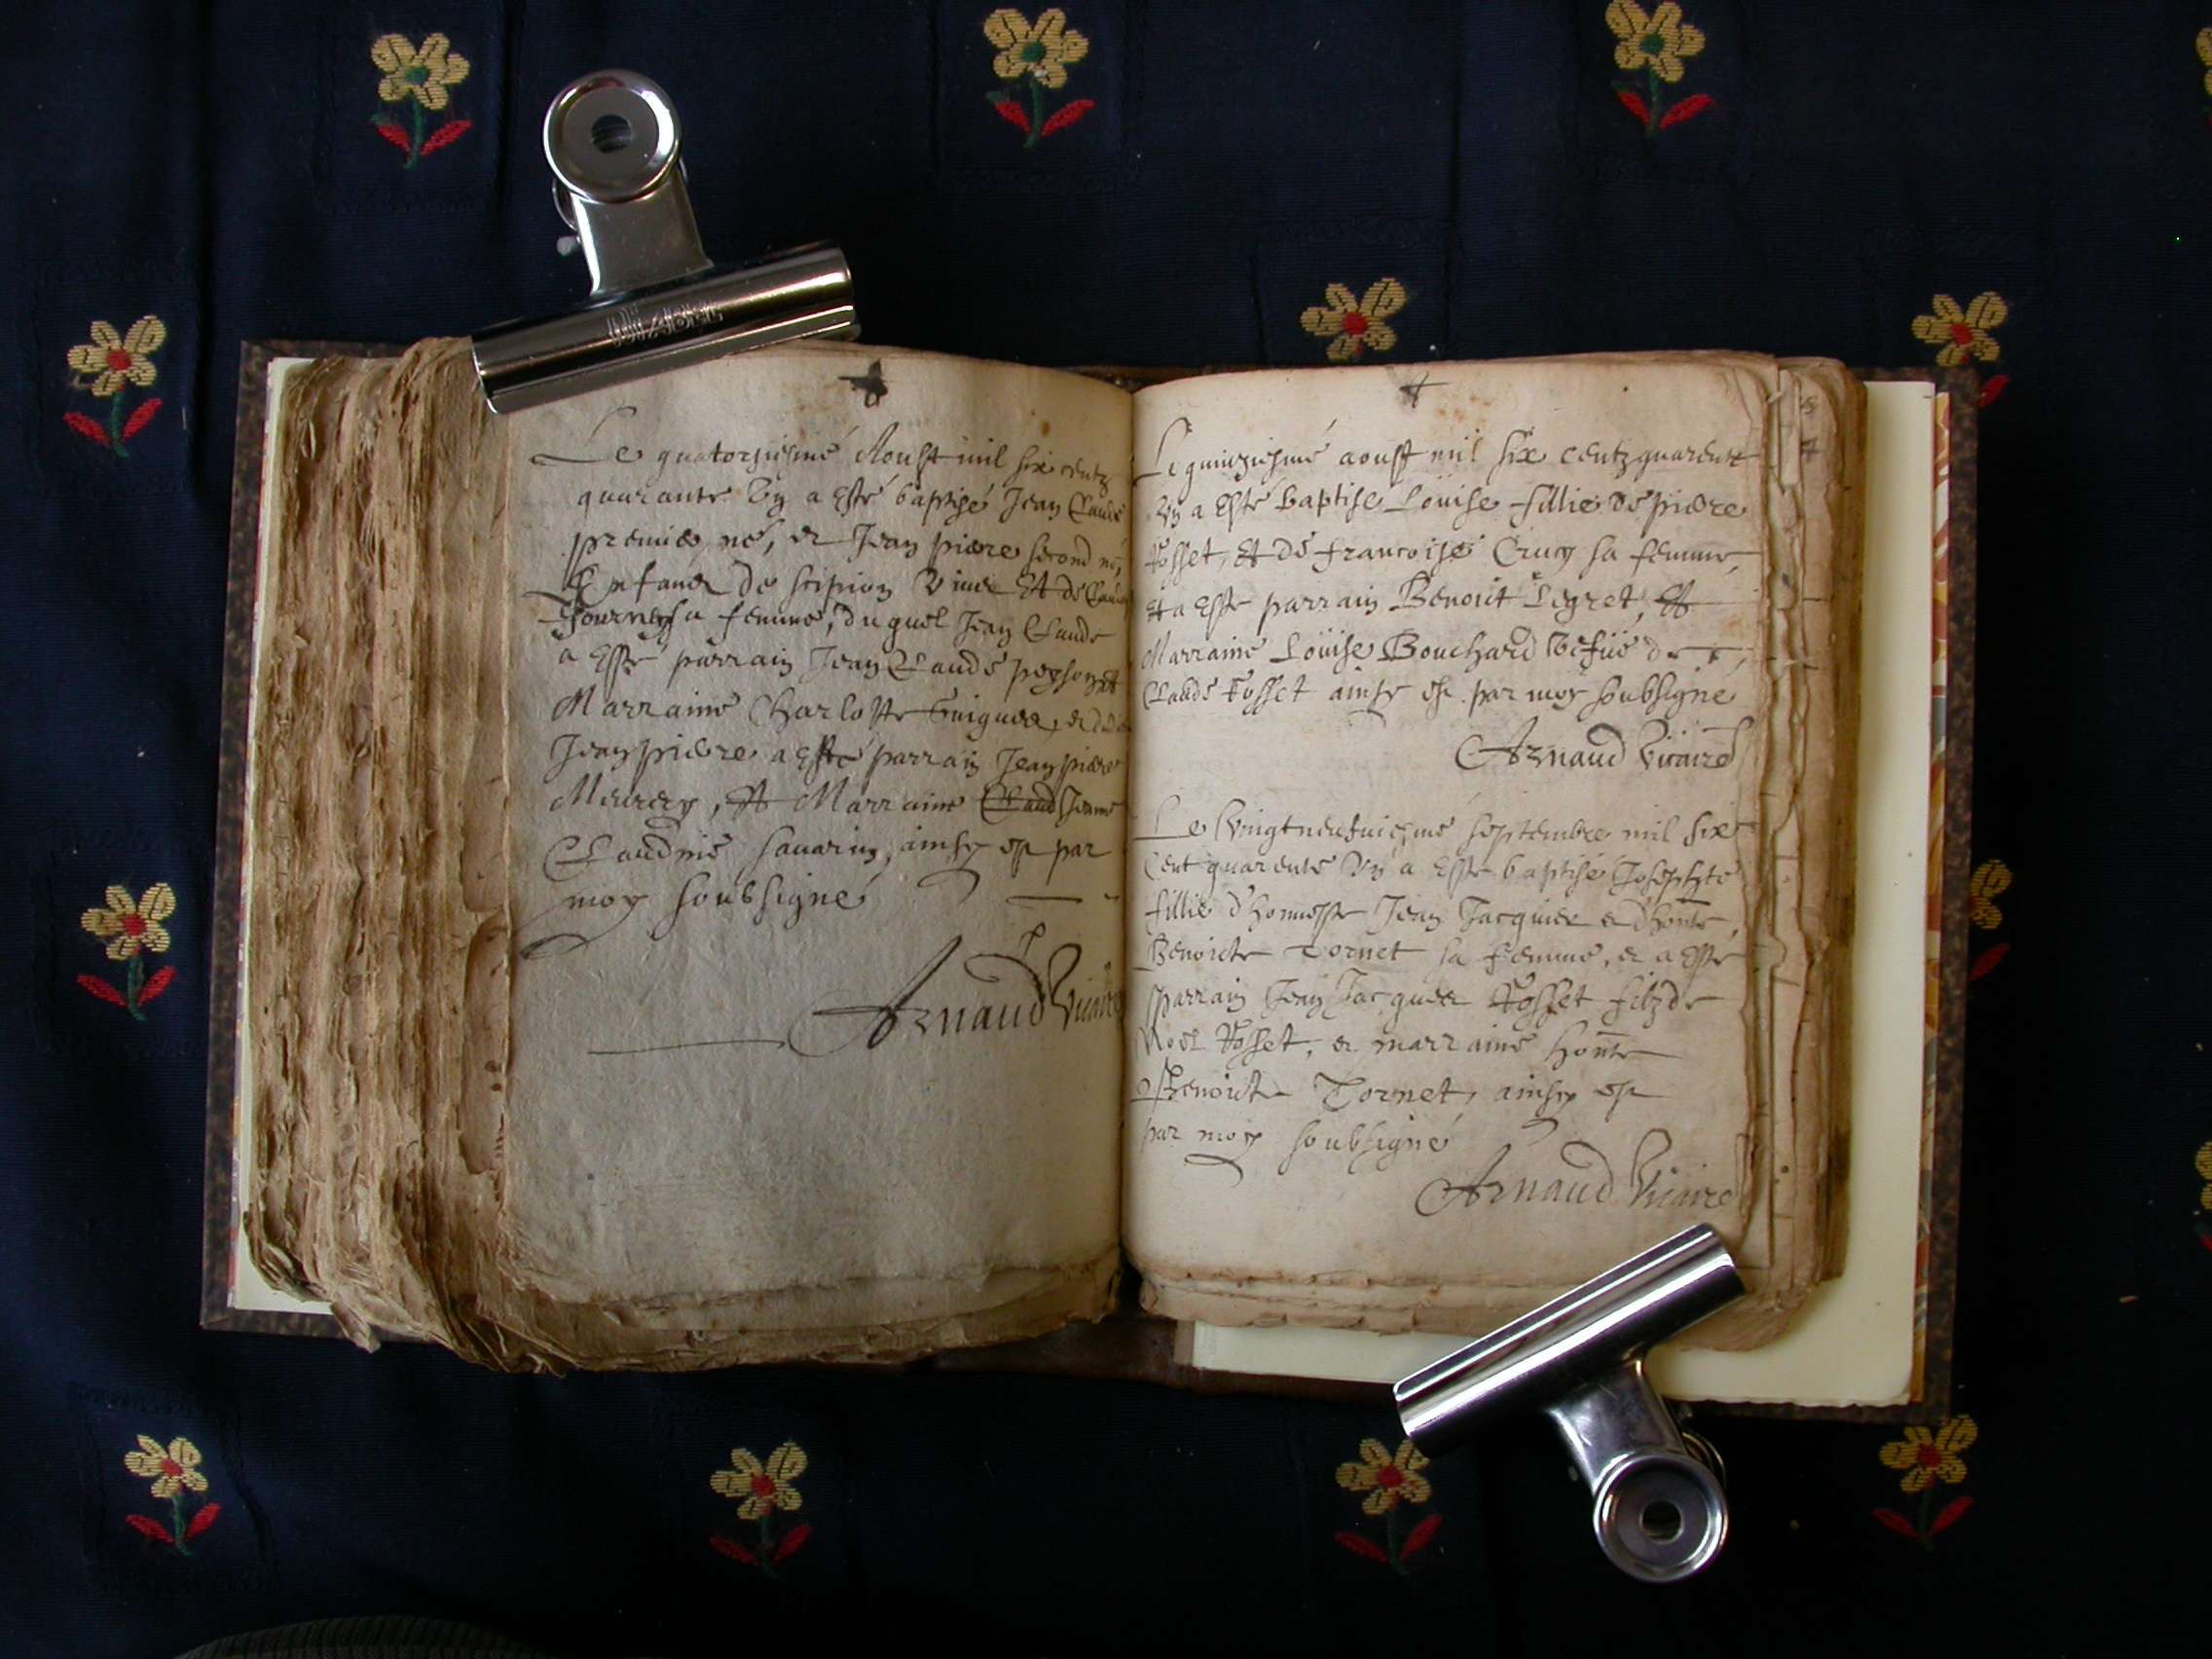 Le quatorziesme Aoust mil six centz
quarante Vn a Esté baptisé Jean Claude
premier né, et Jean piere second né,
Enfans de scipion Viuie Et de
sa femme, duquel Jean Claude
a Esté parrain Jean Claude peyson Et
Marraine Charlotte et
Jean piere a Esté parrain Jean piere
Et Marraine Claud Jeanne
Claudine sauarin, ainsy est par
moy soubsigné
Arnaud Vicaire
Le quinziesme aoust mil six centz quarente
Vn a Esté baptise Loüise fillie de piere
Fosset, Et de francoise Crucy sa femme,
Et a Esté parrain Benoist Legret, Et
Marraine Loüise Bouchard Vefüe de
Claude Fosset ainsy est par moy soubsigné
Arnaud Vicaire
Le Vingtneufuiesme septembre mil six
Cent quarente Vn a Esté baptisé Josephte
fillie d'honneste Jean Jacquier et d'honte
Benoicte Tornet sa femme, et a Esté
parrain Jean Jacques Fosset filz de
Noel Fosset, et marraine honte
Benoicte Tornet, ainsy est
par moy soubsigné
Arnaud Vicaire